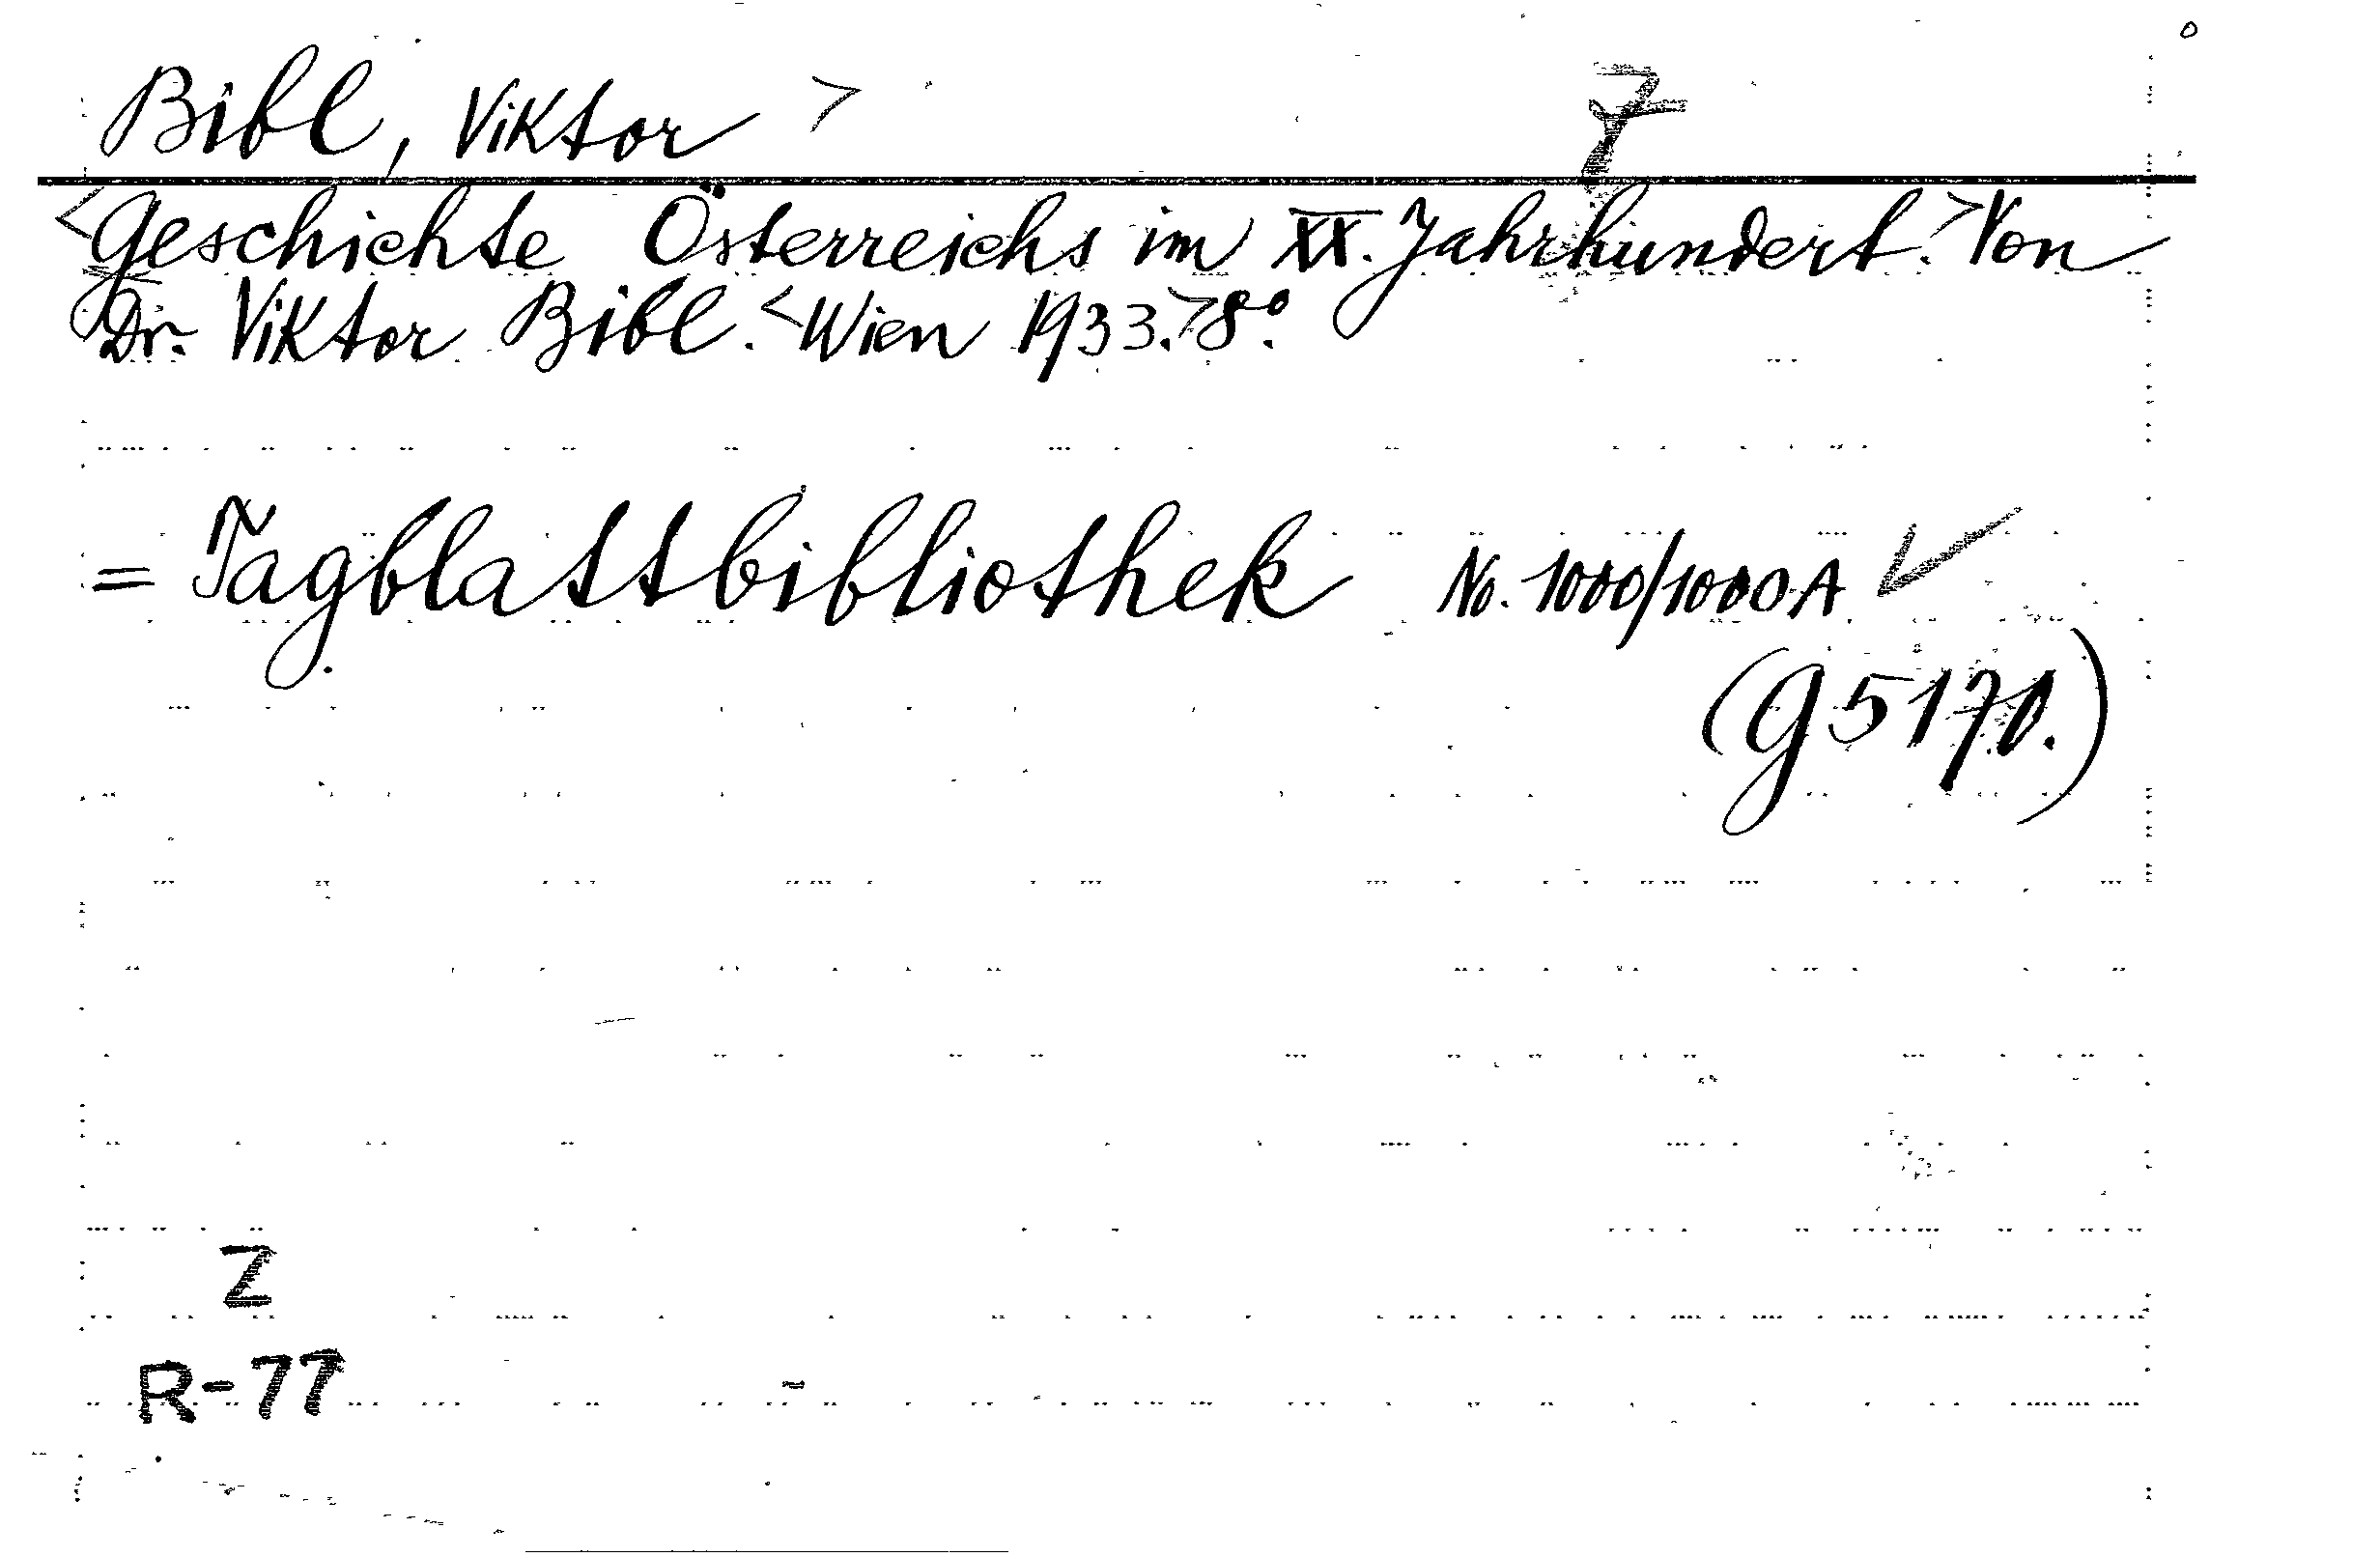 Bibl, Viktor > 7
<Geschichte Österreichs im XX. Jahrhundert.> Von
Dr. Viktor Bibl. <Wien 1933.> 8°.
= Tagblattbibliothek No. 1000/1000A ✓
(G 5170.)
Z
R-77